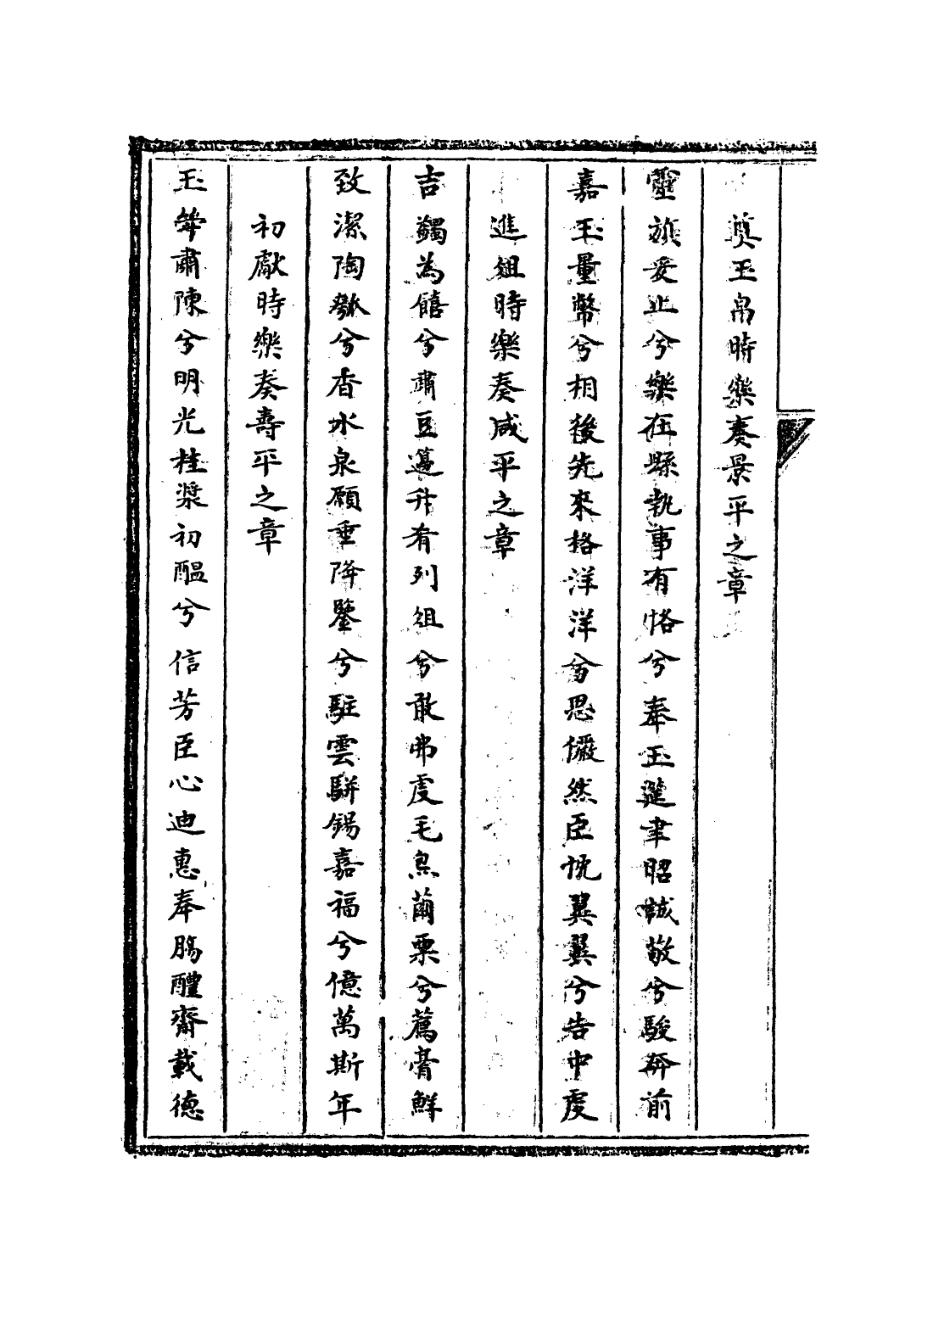 奠玉帛時樂奏景平之章
靈旗爰止兮樂在縣執事有恪兮奉玉筵聿昭誠敬兮駿奔前
嘉玉量幣兮相後先來格洋洋兮思儼然臣忱翼翼兮告中虔
進俎時樂奏咸平之章
吉蠲為饎兮肅豆籩升肴列俎兮敢弗虔毛炰繭栗兮薦膏鮮
致潔陶匏兮香水泉願垂降鑒兮駐雲駢錫嘉福兮億萬斯年
初獻時樂奏壽平之章
玉斝肅陳兮明光桂漿初醞兮信芳臣心迪惠奉觴醴齋載德